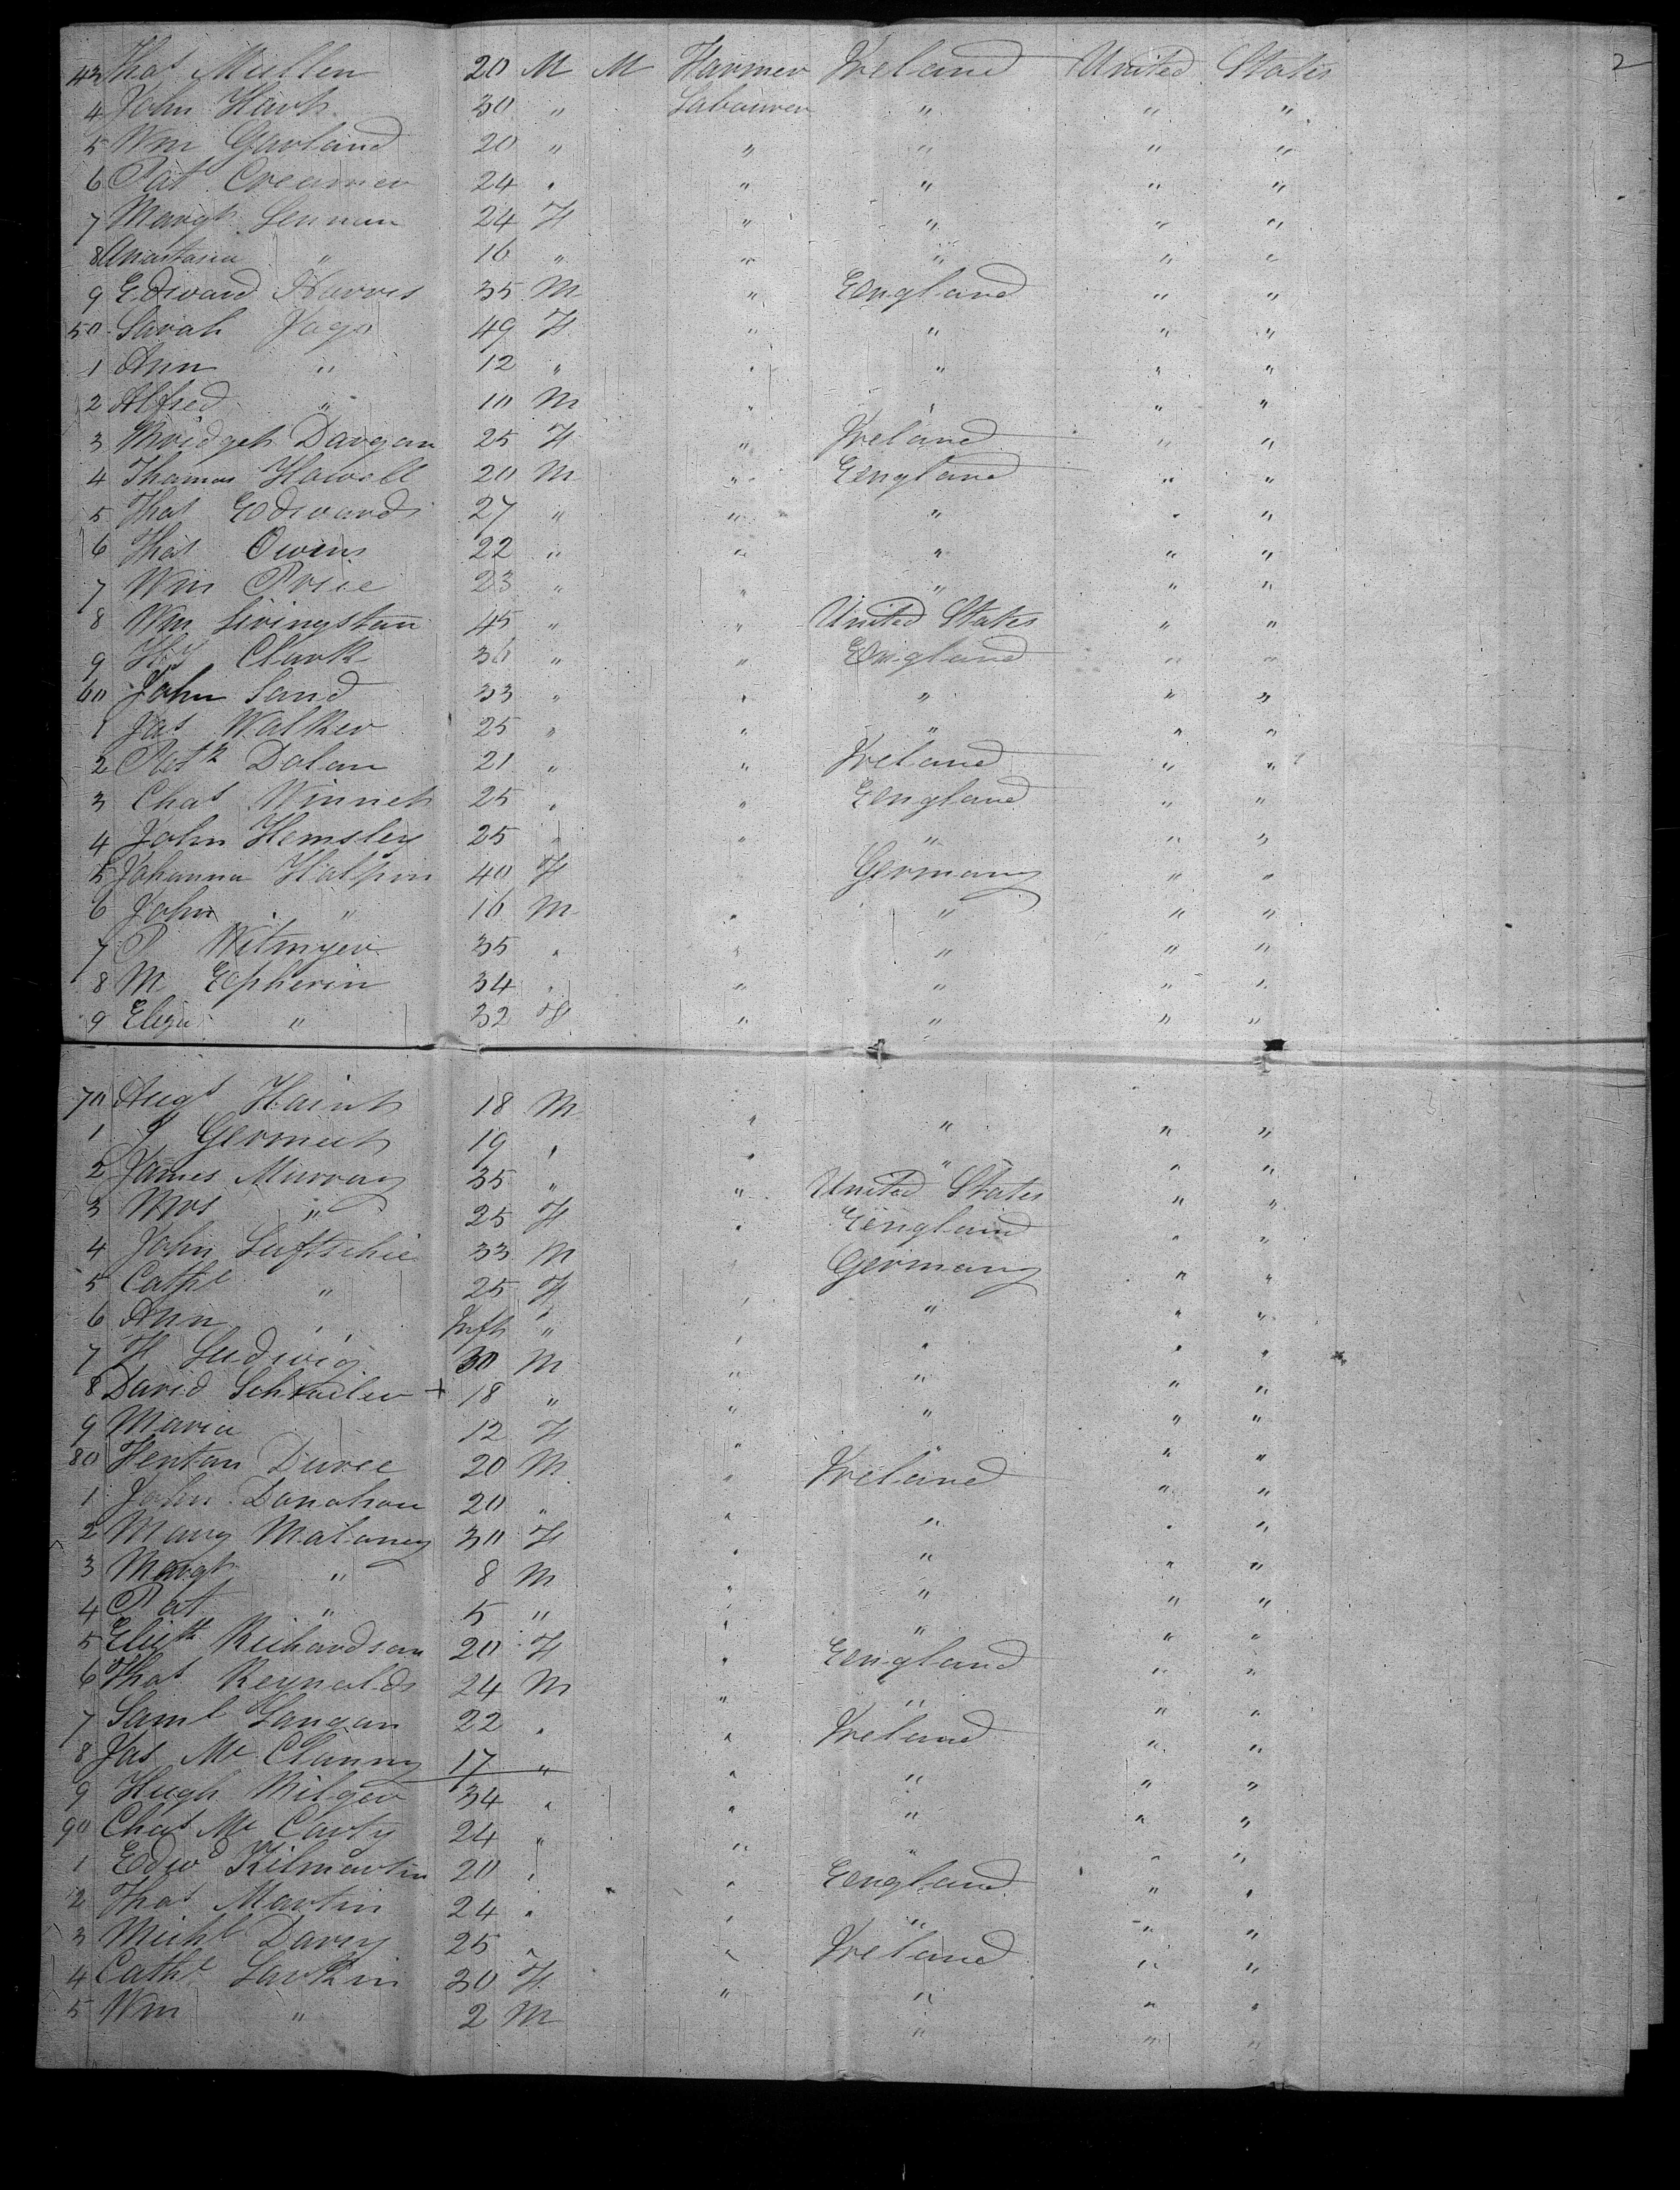 2
43 Thos Mullen 20 M M Farmer Ireland United States
4 John Hart 30 " Labourer " " "
5 Wm Garland 20 " " " " "
6 Pat Creamer 24 " " " " "
7 Margt Lennan 24 F " " " "
8 Anastasia " 16 " " " " "
9 Edward Harris 35 M " England " "
50 Sarah Jago 49 F " " " "
1 Ann " 12 " " " " "
2 Alfred " 10 M " " " "
3 Bridget Dargan 25 F " Ireland " "
4 Thomas Howell 20 M " England " "
5 Thos Edwards 27 " " " " "
6 Thos Owens 22 " " " " "
7 Wm Price 23 " " " " "
8 Wm Livingston 45 " " United States " "
9 Hy Clark 36 " " England " "
60 John Sand 33 " " " " "
1 Jas Walker 25 " " " " "
2 Patk Dolan 21 " " Ireland " "
3 Chas Winnet 25 " " England " "
4 John Hemsley 25 " " " " "
5 Johanna Halpin 40 F " Germany " "
6 John " 16 M " " " "
7 P Witmyer 35 " " " " "
8 M Epherin 34 " " " " "
9 Eliza " 32 F " " " "
70 Augt Haint 18 M " " " "
1 J Germut 19 " " " " "
2 James Murray 35 " " United States " "
3 Mrs " 25 F " England " "
4 John Luftschie 33 M Germany " "
5 Cathe " 25 F " " " "
6 Ann " Inft " " " " "
7 H Ludwig 30 M " " " "
8 David + 18 " " " " "
9 Maria 12 F " " " "
80 Duree 20 M " Ireland " "
1 John Donohoe 20 " " " " "
2 Mary Maloney 30 F " " " "
3 Margt " 8 M " " " "
4 Pat " 5 " " " " "
5 Elizth Richardson 20 F " England " "
6 Thos Reynolds 24 M " " " "
7 Saml Langan 22 " " Ireland " "
8 Jas Mc Clunny 17 " " " " "
9 Hugh Bilger 34 " " " " "
90 Chas Mc Carty 24 " " " " "
1 Edwd Kilmartin 20 " " England " "
2 Thos Martin 24 " " " " "
3 Michl Darcy 25 " " Ireland " "
4 Cathe Larkin 30 F " " " "
5 Wm " 2 M " " "